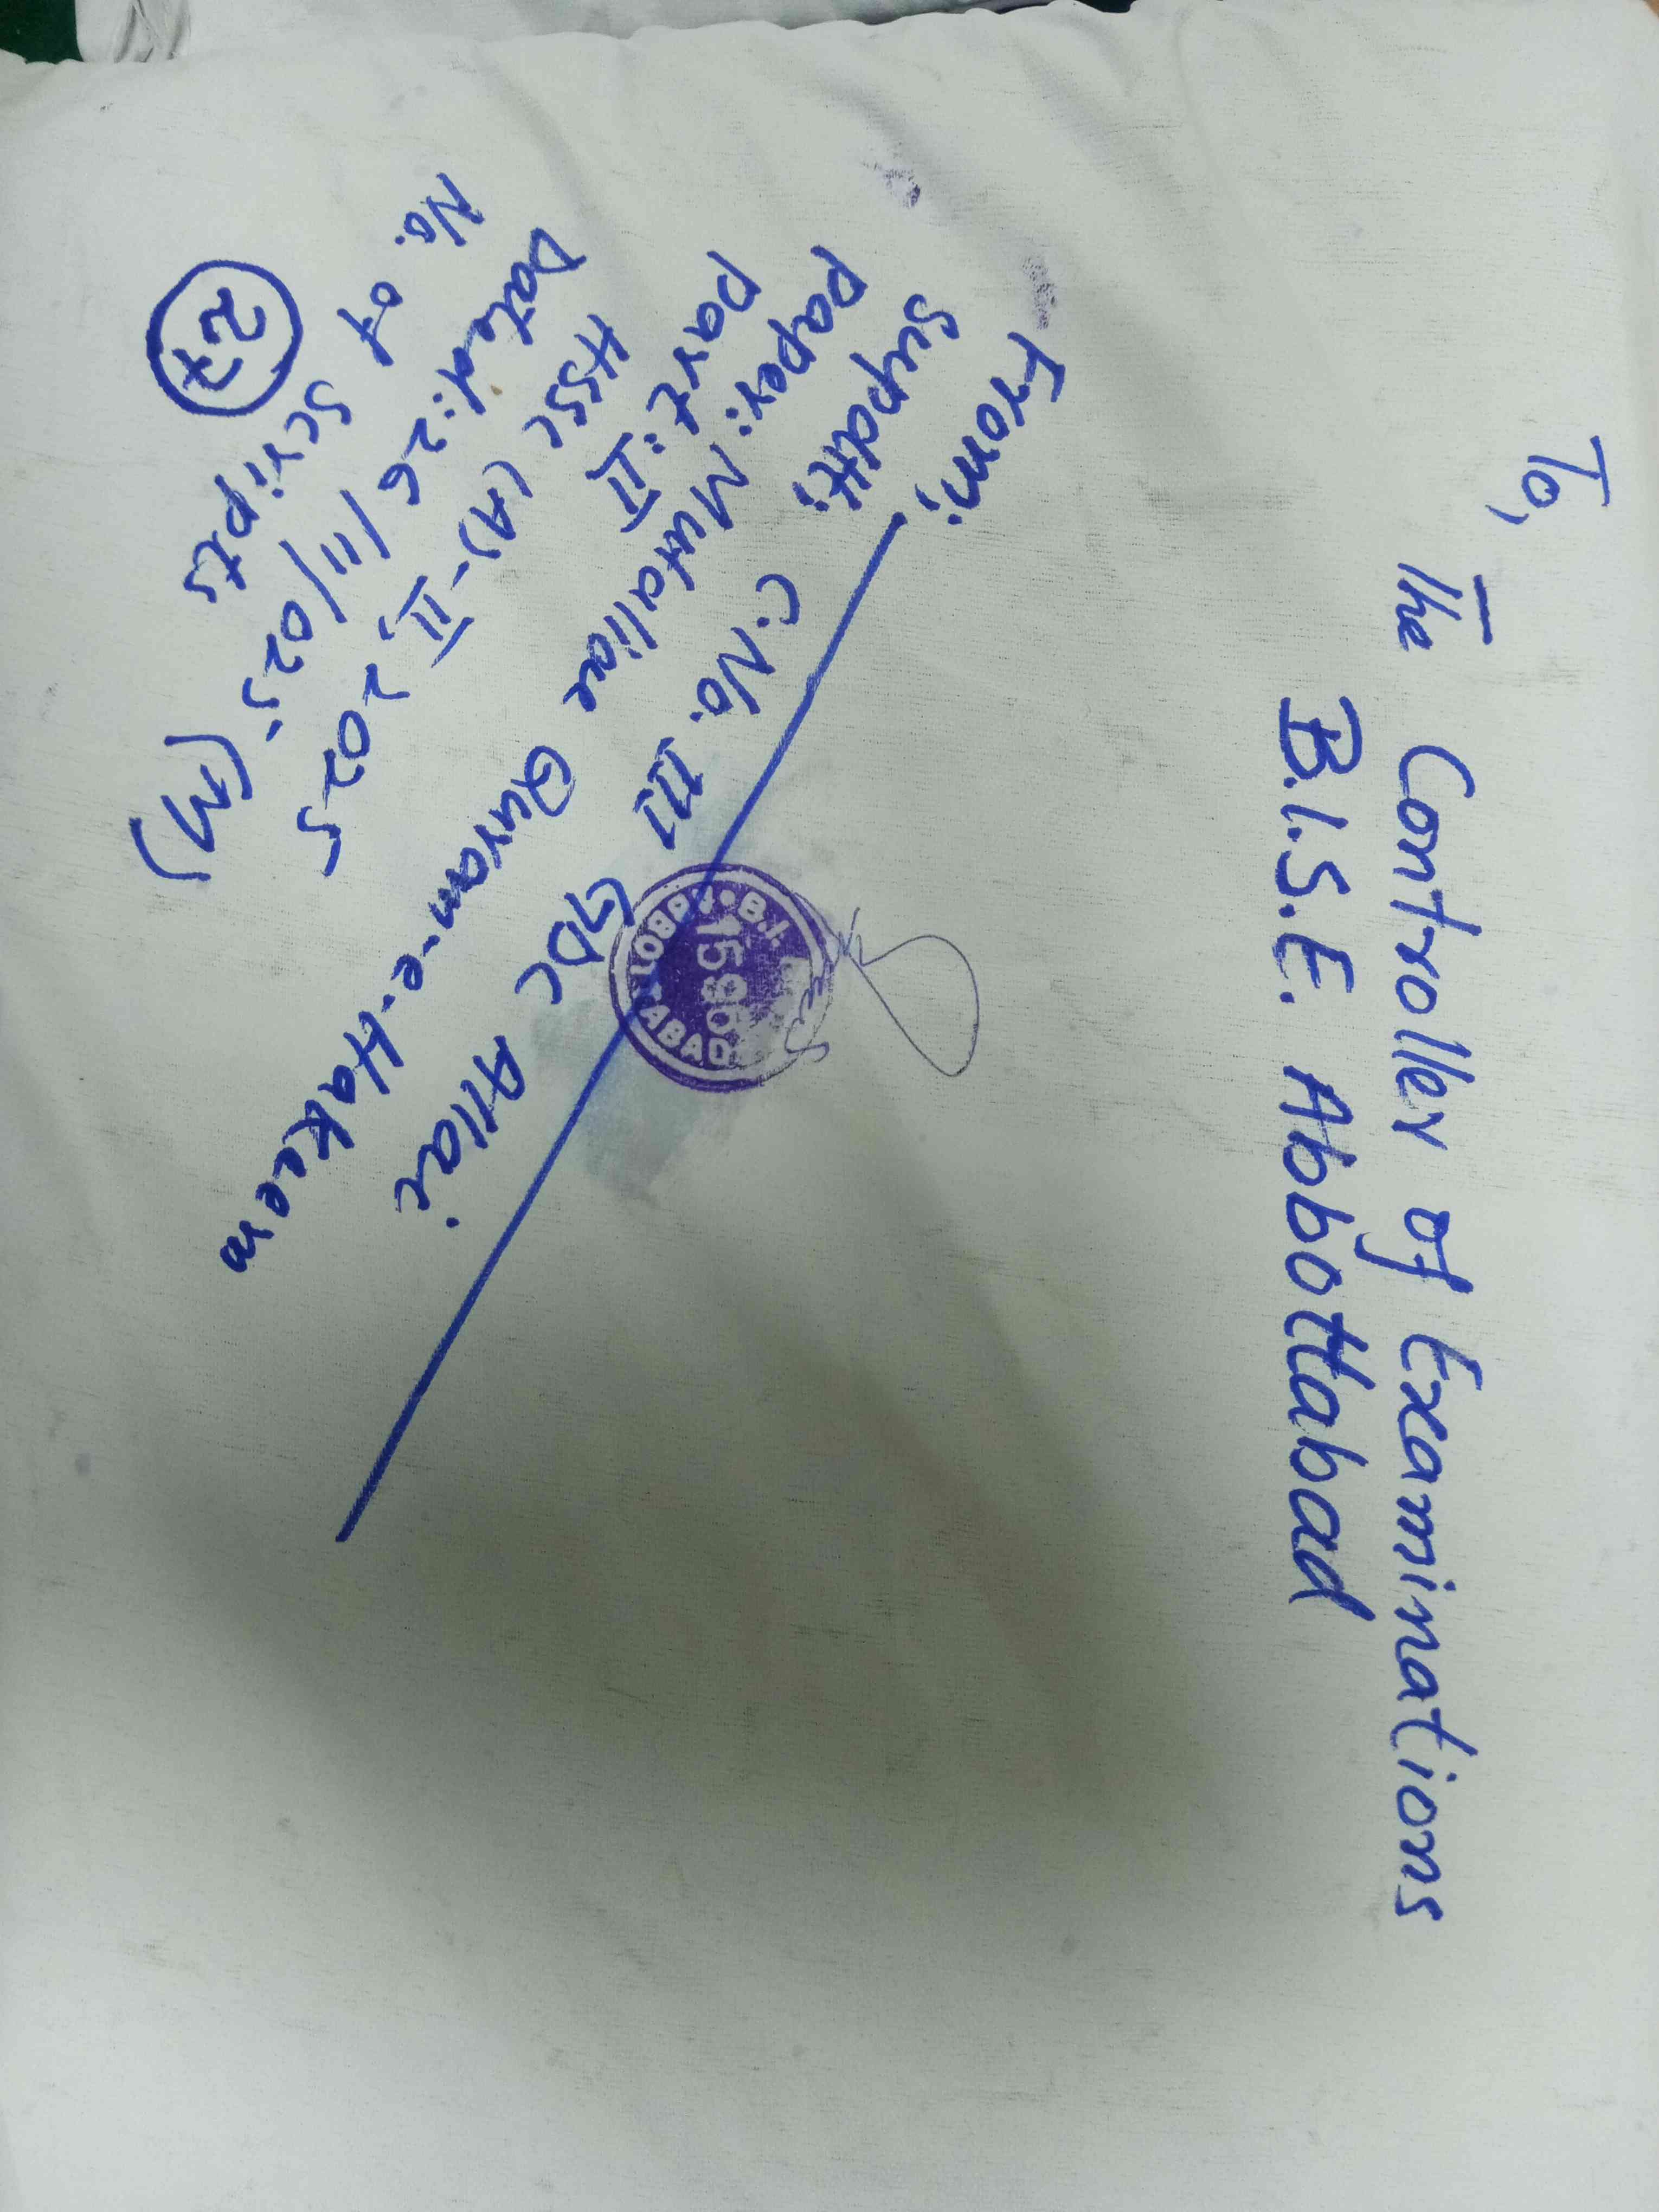 To,
The Controller of Examinations
B.I.S.E. Abbottabad
From;
Supdtt; C.No. III GDC Allai
Paper: Mutaliae Quran-e-Hakeem
Part: II
HSSC (A)-II, 2025
Dated: 26/11/025.
No. of Scripts (M)
27